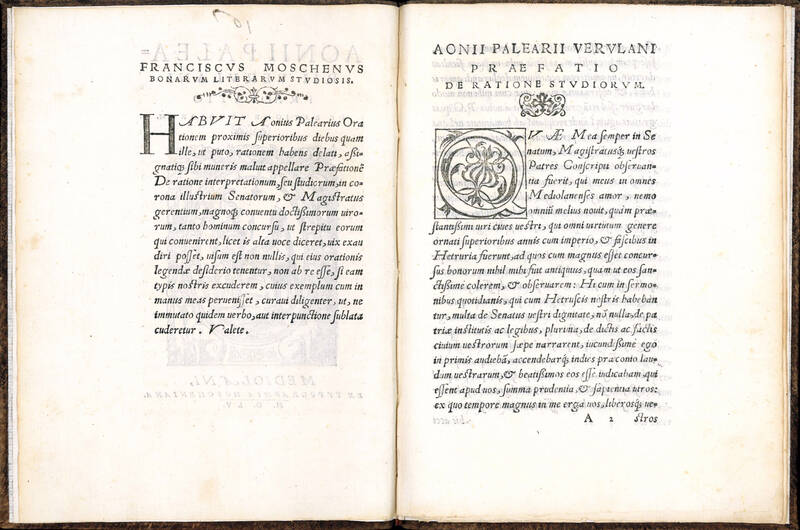 107
FRANCISCVS MOSCHENVS
BONARVM LITERARVM STVDIOSIS.
HABVIT Aonius Palearius Ora
tionem proximis superioribus diebus quam
ille, ut puto, rationem habens delati, assi-
gnatiq; sibi muneris maluit appellare Præfationē
De ratione interpretationum, seu studiorum, in co-
rona illustrium Senatorum, & Magistratus
gerentium, magnoq; conuentu doctissimorum uiro-
rum, tanto hominum concursu, ut strepitu eorum
qui conuenirent, licet is alta uoce diceret, uix exau
diri posset, uisum est non nullis, qui eius orationis
legendæ desiderio tenentur, non ab re esse, si eam
typis nostris excuderem, cuius exemplum cum in
manus meas peruenisset, curaui diligenter, ut, ne
immutato quidem uerbo, aut interpunctione sublata
cuderetur. Valete.
AONII PALEARII VERVLANI
PRAEFATIO
DE RATIONE STVDIORVM.
QVAE Mea semper in Se
natum, Magistratusq; uestros
Patres Conscripti obseruan-
tia fuerit, qui meus in omnes
Mediolanenses amor, nemo
omniū melius nouit, quàm præ-
stantissimi uiri ciues uestri, qui omni uirtutum genere
ornati superioribus annis cum imperio, & fascibus in
Hetruria fuerunt, ad quos cum magnus esset concur-
sus bonorum nihil mihi fuit antiquius, quàm ut eos san-
ctissimè colerem, & obseruarem: Hi cum in sermo-
nibus quotidianis, qui cum Hetruscis nostris habeban
tur, multa de Senatus uestri dignitate, nō nulla, de pa
triæ institutis ac legibus, plurima, de dictis ac factis
ciuium uestrorum sæpe narrarent, iucundissimè ego
in primis audiebā, accendebarq; indies præconio lau-
dum uestrarum, & beatissimos eos esse iudicabam, qui
essent apud uos, summa prudentia, & sapientia uiros:
ex quo tempore magnus in me erga uos, liberosq; ue-
A 2 stros